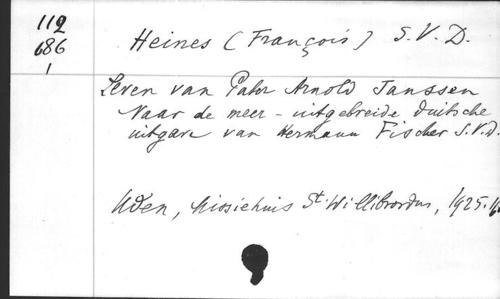 112
686
1
Heines (François) S.V.D.
Leven van Pater Arnold Janssen
Naar de meer-uitgebreide duitsche
uitgave van Hermann Fischer S.V.D.
Uden, Missiehuis St Willibrordus, 1925.